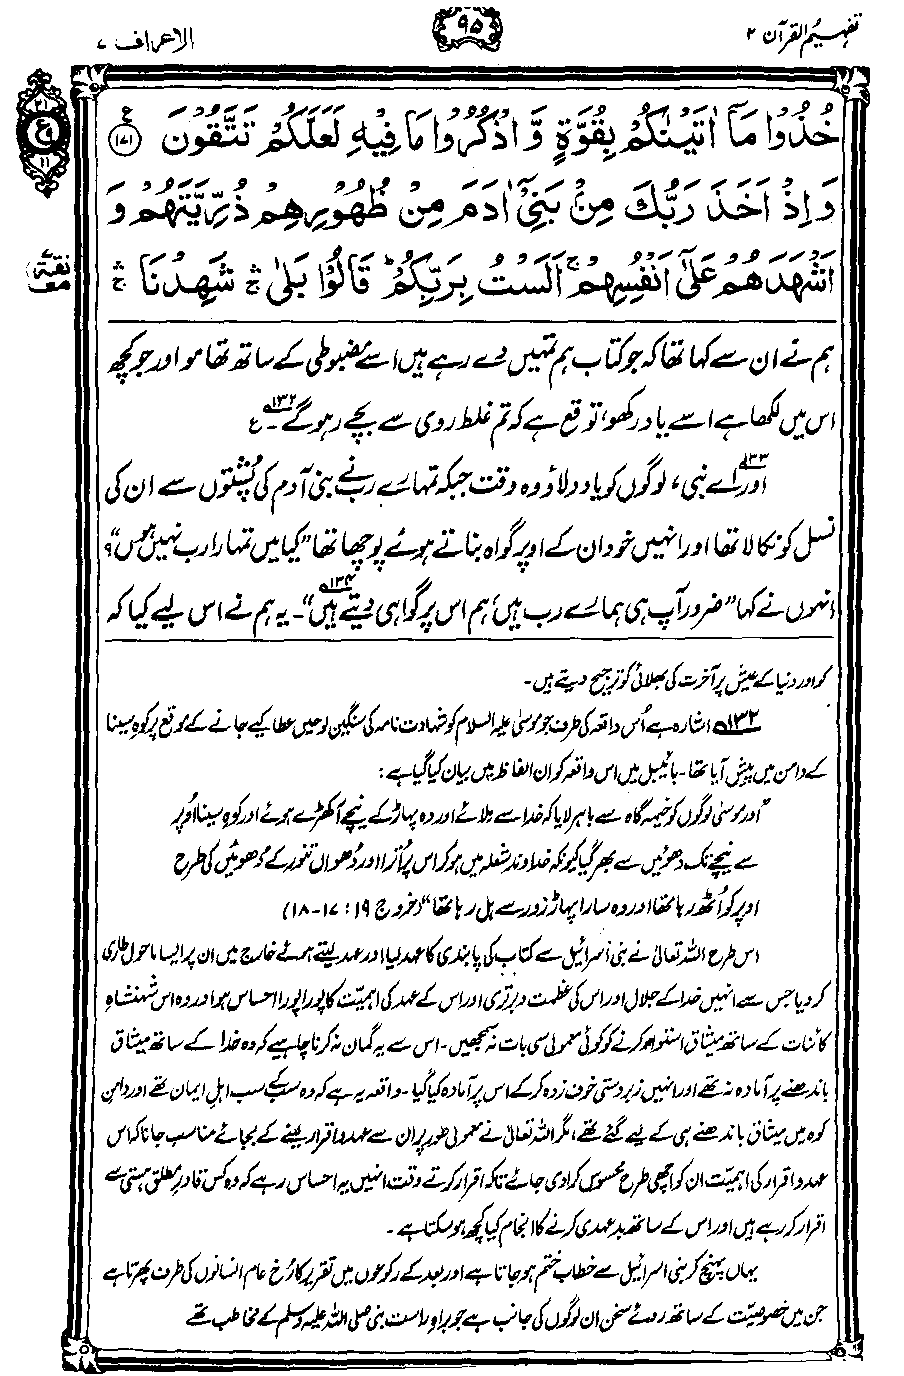 تفہیم القرآن ۲
۹۵
الاعراف ۷
خُذُوْا مَاۤ اٰتَيْنٰكُمْ بِقُوَّةٍ وَّاذْكُرُوْا مَا فِيْهِ لَعَلَّكُمْ تَتَّقُوْنَ ۱۷۱ ع
وَاِذْ اَخَذَ رَبُّكَ مِنْۢ بَنِيْۤ اٰدَمَ مِنْ ظُهُوْرِهِمْ ذُرِّيَّتَهُمْ وَ
اَشْهَدَهُمْ عَلٰۤى اَنْفُسِهِمْ ۚ اَلَسْتُ بِرَبِّكُمْ ؕ قَالُوْا بَلٰى ۛۚ شَهِدْنَا ۛۚ
۲۱
ع
۱۱
ہم نے ان سے کہا تھا کہ جو کتاب ہم تمہیں دے رہے ہیں اسے مضبوطی کے ساتھ تھامو اور جو کچھ
اس میں لکھا ہے اسے یاد رکھو، توقع ہے کہ تم غلط روی سے بچے رہو گے۱۳۲۔ ع
اور۱۳۳ اے نبی، لوگوں کو یاد دلاؤ وہ وقت جبکہ تمہارے رب نے بنی آدم کی پُشتوں سے ان کی
نسل کو نکالا تھا اور انہیں خود ان کے اوپر گواہ بناتے ہوئے پوچھا تھا ”کیا میں تمہارا رب نہیں ہوں“؟
انہوں نے کہا ”ضرور آپ ہی ہمارے رب ہیں، ہم اس پر گواہی دیتے ہیں۱۳۴“۔ یہ ہم نے اس لیے کیا کہ
کو اور دنیا کے عیش پر آخرت کی بھلائی کو ترجیح دیتے ہیں۔
۱۳۲ اشارہ ہے اُس واقعہ کی طرف جو موسیٰ علیہ السلام کو شہادت نامہ کی سنگین لوحیں عطا کیے جانے کے موقع پر کوہِ سینا
کے دامن میں پیش آیا تھا۔ بائیبل میں اس واقعہ کو ان الفاظ میں بیان کیا گیا ہے:
”اور موسیٰ لوگوں کو خیمہ گاہ سے باہر لایا کہ خدا سے ملائے اور وہ پہاڑ کے نیچے آکھڑے ہوئے اور کوہِ سینا اُوپر
سے نیچے تک دھوئیں سے بھر گیا کیونکہ خداوند شعلہ میں ہو کر اس پر اُترا اور دُھواں تنور کے دُھوئیں کی طرح
اوپر کو اُٹھ رہا تھا اور وہ سارا پہاڑ زور سے ہل رہا تھا“ (خروج ۱۹: ۱۷-۱۸)
اس طرح اللہ تعالیٰ نے بنی اسرائیل سے کتاب کی پابندی کا عہد لیا اور عہد لیتے ہوئے خارج میں ان پر ایسا ماحول طاری
کر دیا جس سے انہیں خدا کے جلال اور اس کی عظمت و برتری اور اس کے عہد کی اہمیت کا پورا پورا احساس ہو اور وہ اس شہنشاہِ
کائنات کے ساتھ میثاق استوار کرنے کو کوئی معمولی سی بات نہ سمجھیں۔ اس سے یہ گمان نہ کرنا چاہیے کہ وہ خدا کے ساتھ میثاق
باندھنے پر آمادہ نہ تھے اور انہیں زبردستی خوف زدہ کر کے اس پر آمادہ کیا گیا۔ واقعہ یہ ہے کہ وہ سب کے سب اہلِ ایمان تھے اور دامنِ
کوہ میں میثاق باندھنے ہی کے لیے گئے تھے، مگر اللہ تعالیٰ نے معمولی طور پر ان سے عہد و اقرار لینے کے بجائے مناسب جانا کہ اس
عہد و اقرار کی اہمیت ان کو اچھی طرح محسوس کرا دی جائے تاکہ اقرار کرتے وقت انہیں یہ احساس رہے کہ وہ کس قادرِ مطلق ہستی سے
اقرار کر رہے ہیں اور اس کے ساتھ بدعہدی کرنے کا انجام کیا کچھ ہو سکتا ہے۔
یہاں پہنچ کر بنی اسرائیل سے خطاب ختم ہو جاتا ہے اور بعد کے رکوعوں میں تقریر کا رُخ عام انسانوں کی طرف پھرتا ہے
جن میں خصوصیت کے ساتھ روئے سخن ان لوگوں کی جانب ہے جو براہِ راست نبی صلی اللہ علیہ وسلم کے مخاطب تھے